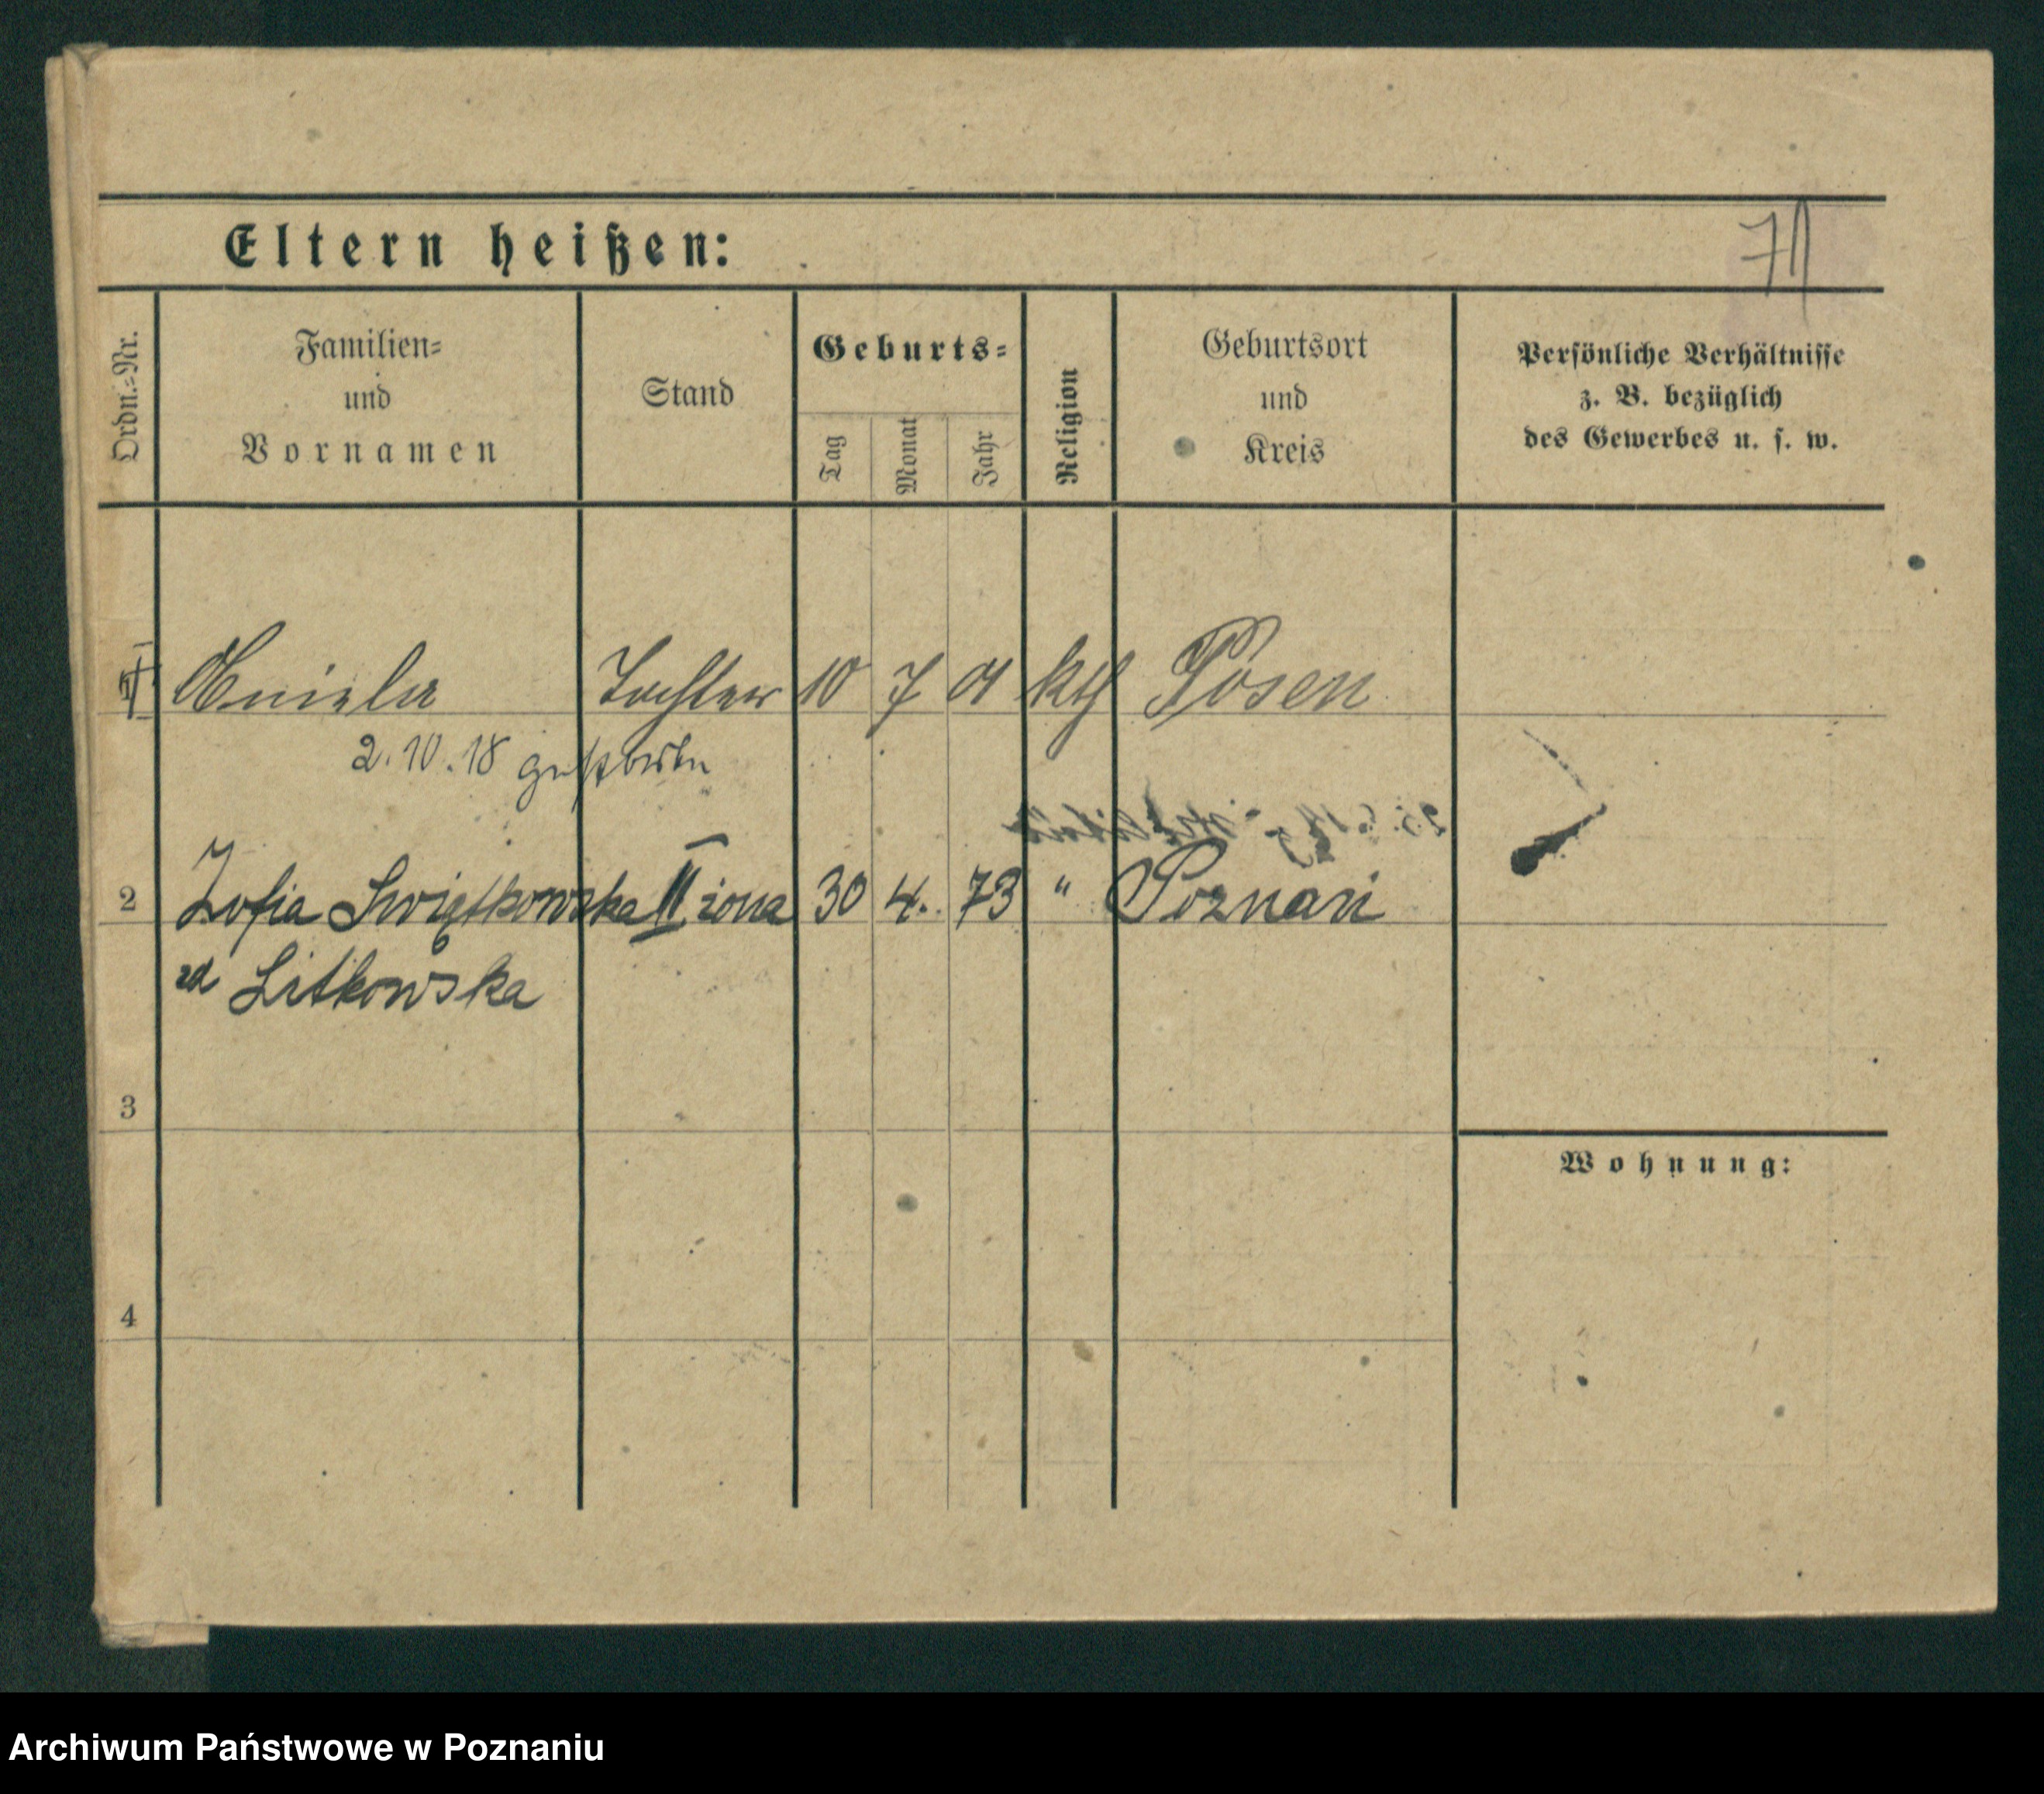 Eltern heißen:
71
Ordn.-Nr.
Familien-
und
Vornamen
Stand
Geburts-
Tag
Monat
Jahr
Religion
Geburtsort
und
Kreis
Persönliche Verhältnisse
z. B. bezüglich
des Gewerbes u. s. w.
Aniela Tochter 10 7 01 kth Posen
2.10.18 gestorben
2 Zofia Swiątkowska II żona 30 4. 73 " Poznań
zd Litkowska
3
Wohnung:
4
Archiwum Państwowe w Poznaniu